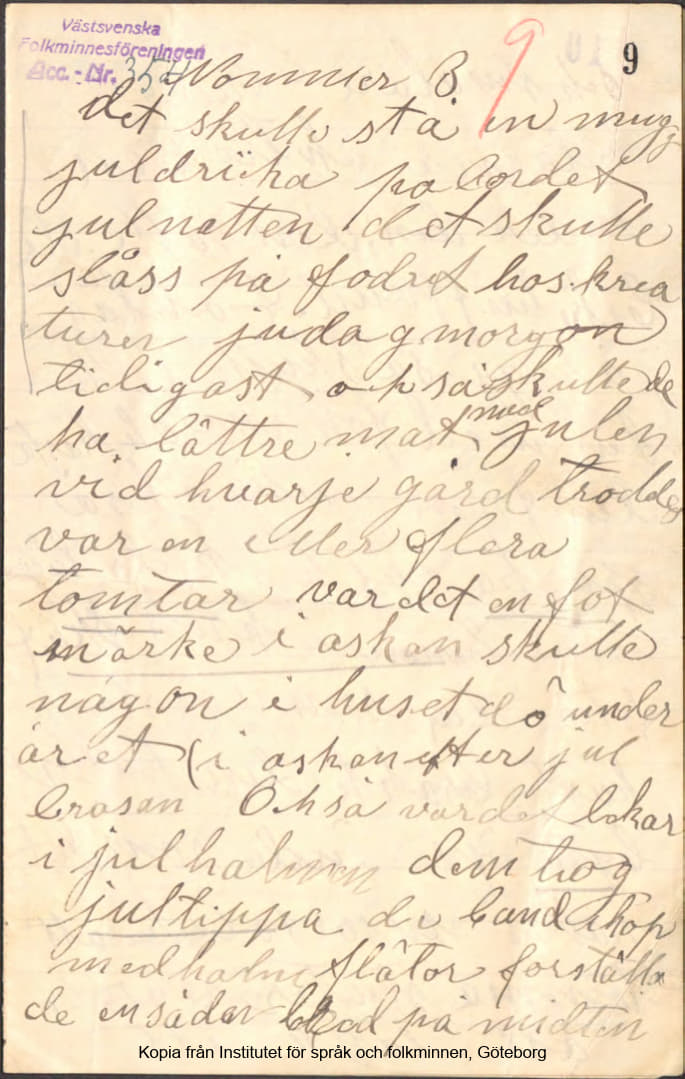 Västsvenska
Folkminnesföreningen
Acc. - Nr. 352
9
9
Nommer 3
det skulle stå en mugg
juldricka på bordet
julnatten det skulle
slåss på fodret hos krea
turen judag morgon
tidigast och så skulle de
ha lättre mat med julen
vid hvarje gård trodde
var en eller flera
tomtar var det en fot
märke i askan skulle
någon i huset dö under
året (i askan efter jul
brasan Också var det lekar
i julhalmen dem tog
jultippa de band ihop
med halm flätor forställa
de en sådan på midten
Kopia från Institutet för språk och folkminnen, Göteborg